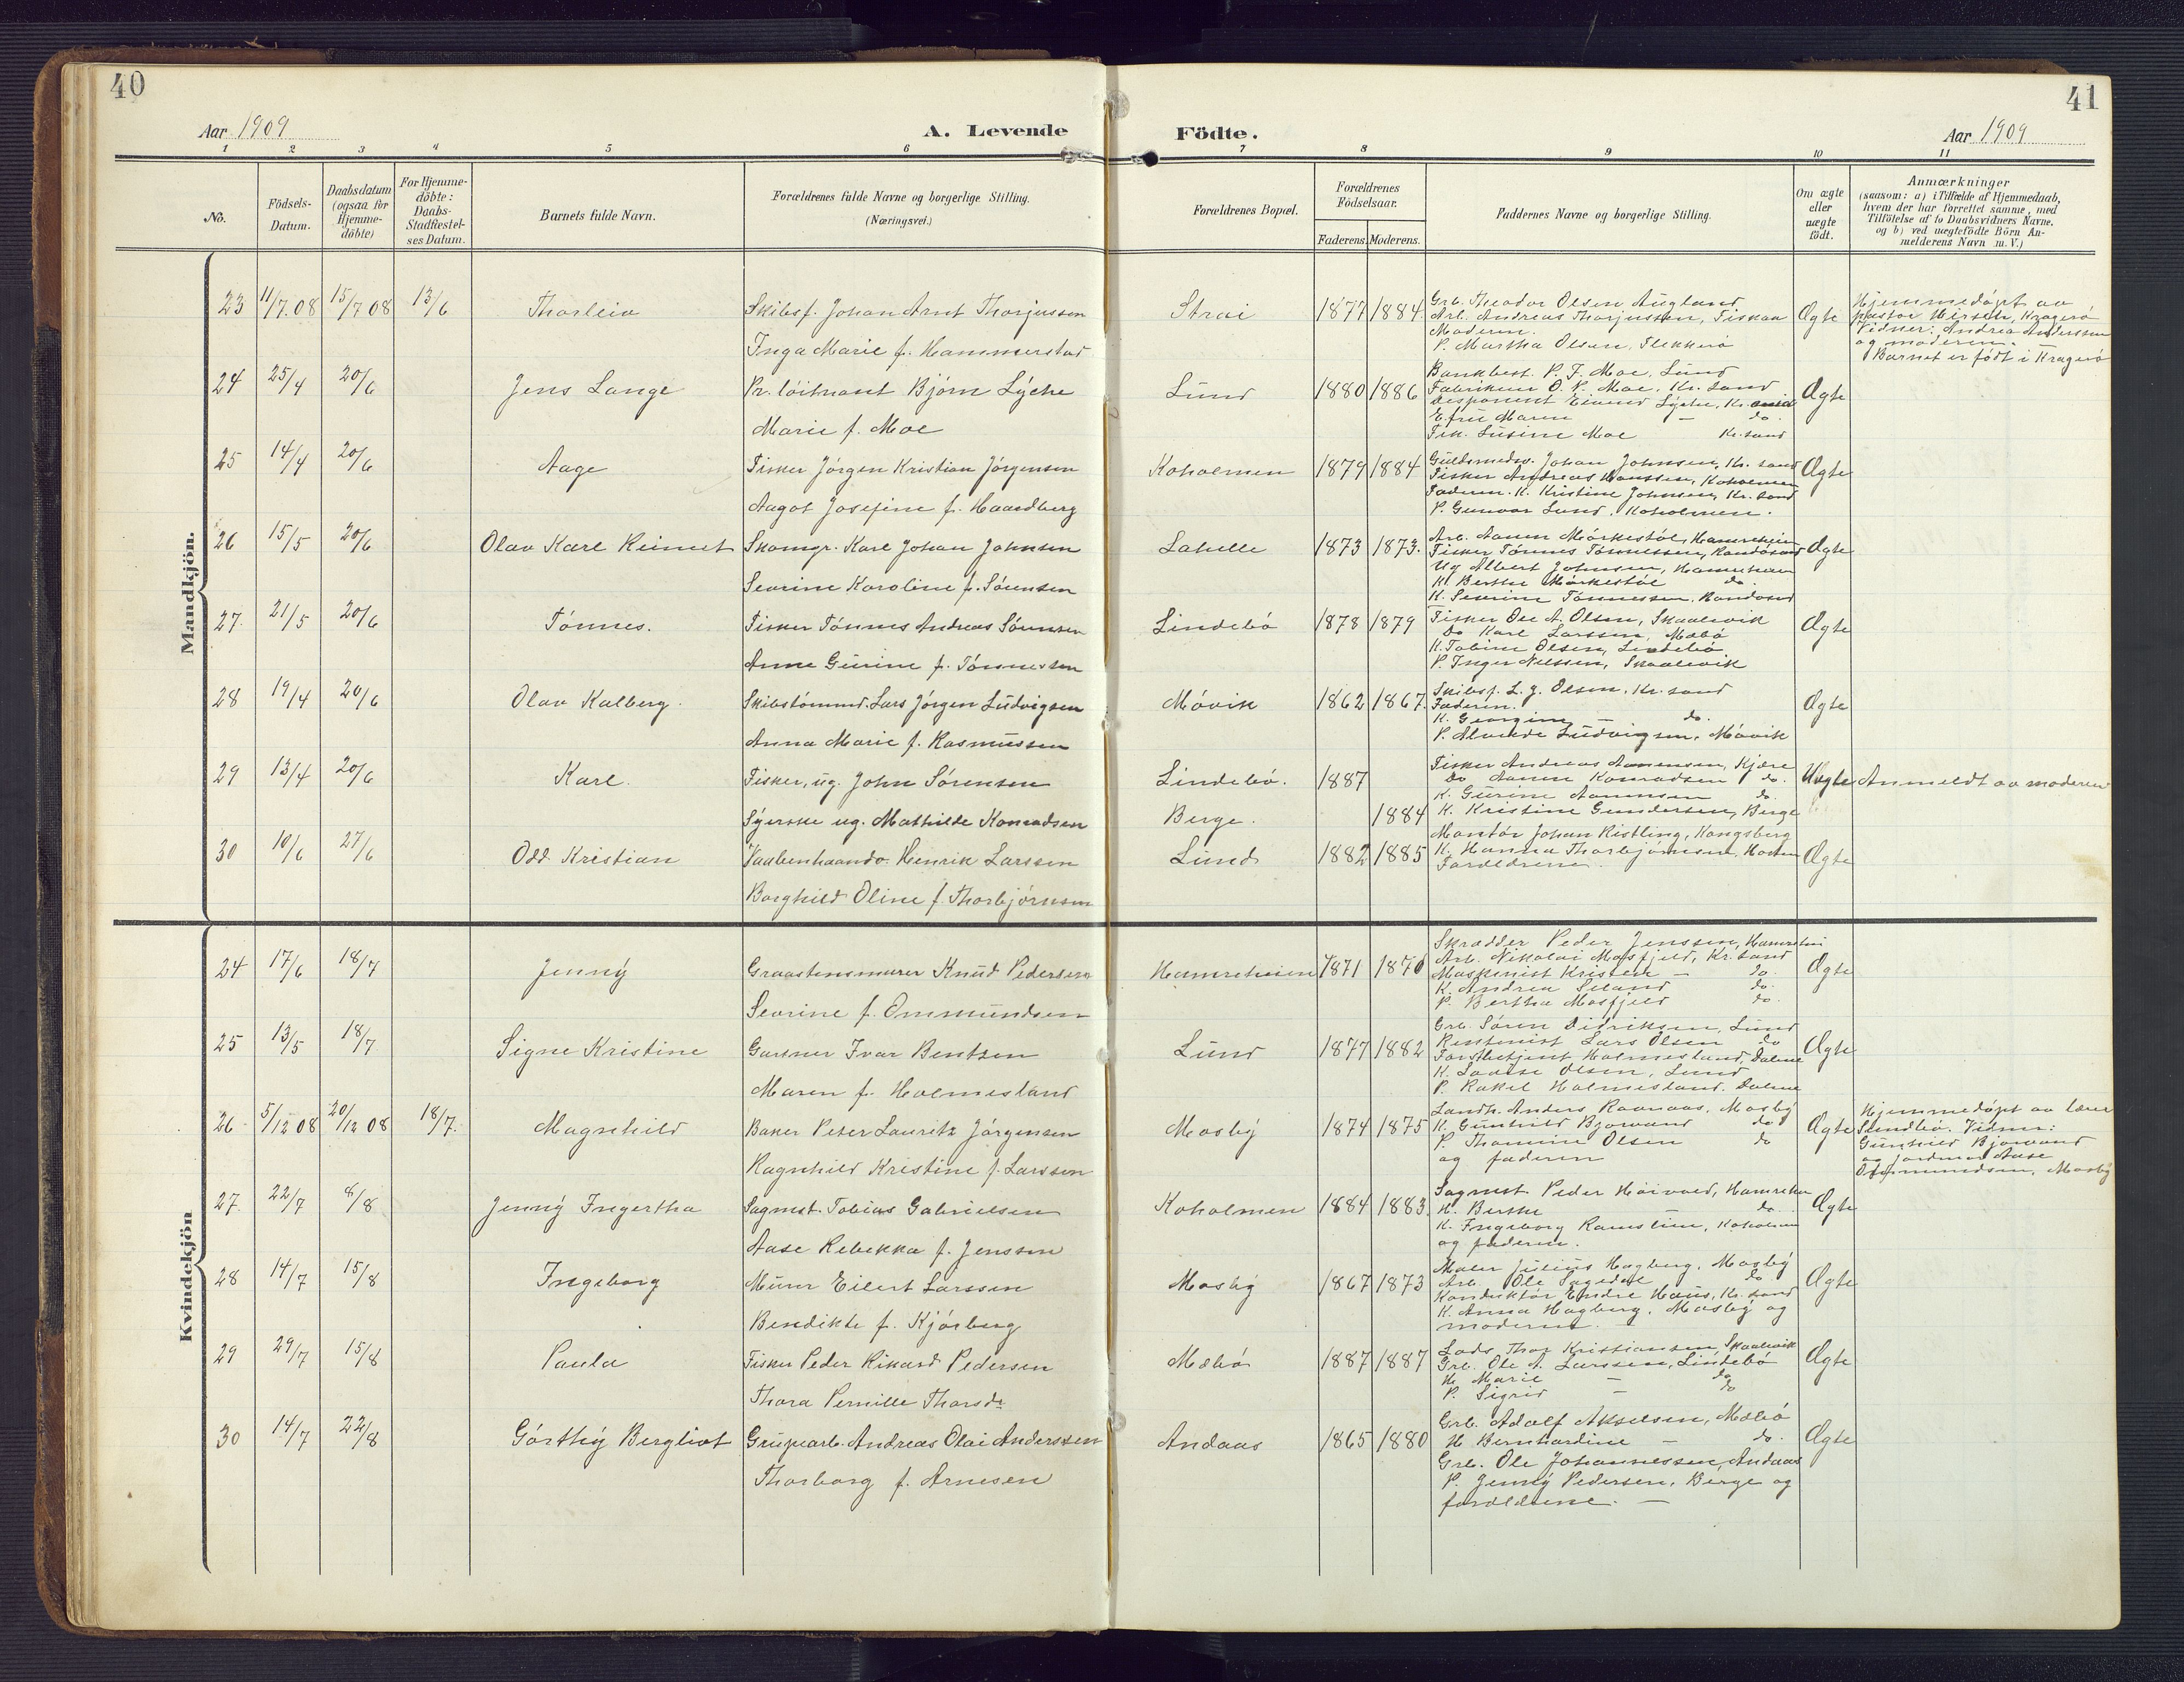 40
41
Aar 1909
A. Levende
Födte.
Aar 1909
1 2 3 4 5 6 7 8 9 10 11
No.
Födsels-Datum.
Daabsdatum (ogsaa for Hjemme-döbte)
For Hjemme-döbte: Daabs-Stadfæstel-ses Datum.
Barnets fulde Navn.
Forældrenes fulde Navne og borgerlige Stilling. (Næringsvei.)
Forældrenes Bopæl.
Forældrenes Födselsaar.
Faderens. Moderens.
Faddernes Navne og borgerlige Stilling.
Om ægte eller uægte födt.
Anmærkninger
(saasom: a) i Tilfælde af Hjemmedaab, hvem der har forrettet samme, med Tilföielse af to Daabsvidners Navne, og b) ved uægtefödte Börn Anmelderens Navn m. V.)
Mandkjön.
23 11/7.08 15/7 08 13/6 Thorleiv
Skibsf. Johan Arnt Thorjussen
Inga Marie f. Hammerstad
Strai 1877 1884
Grb. Theodor Olsen Augland
Arb. Andreas Thorjussen, Fiskaa
Moderen.
P. Martha Olsen, Flekkerö
Ægte
Hjemmedöpt av
pastor Hirsch, Kragerö
Vidner: Andrea Anderssen
og moderen.
Barnet er födt i Kragerö
24 25/4 20/6 Jens Lange
Pr. löitnant Björn Lyche
Marie f. Moe
Lund 1880 1886
Bankbest. P. F. Moe, Lund
Fabrikeier O. P. Moe, Kr. sand
Disponent Eivind Lyche, Kr. sand
E. fru Maren — do.
Frk. Lusine Moe Kr. sand
Ægte
25 14/4 20/6 Aage
Fisker Jörgen Kristian Jörgensen
Aagot Josefine f. Haardberg
Koholmen 1879 1884
Guldsmedsv. Johan Johnsen, Kr. sand
Fisker Andreas Hanssen, Koholmen
Faderen. K. Kristine Johnsen, Kr. sand
P. Gunvor Lund, Koholmen.
Ægte
26 15/5 20/6 Olav Karl Reimet
Skomgr. Karl Johan Johnsen
Sevrine Karoline f. Sörensen
Lahelle 1873 1873.
Arb. Aanen Mörkestöl, Hamreheien
Fisker Tönnes Tönnessen, Randösund
Ug Albert Johnsen, Hamreheien
K. Berthe Mörkestöl do.
K. Severine Tönnessen, Randösund
Ægte
27. 21/5 20/6 Tönnes.
Fisker Tönnes Andreas Sörensen
Anne Gurine f. Tönnessen
Lindebö 1878 1879
Fisker Ole A. Olsen, Skaalevik
Do Karl Larssen, Mæbö
K. Tobine Olsen, Lindebö
P. Inger Nilssen, Skaalevik
Ægte
28 19/4 20/6 Olav Kalberg.
Skibstömmd. Lars Jörgen Ludvigsen
Anna Marie f. Rasmussen
Mövik 1862 1867.
Skibsf. L. J. Olsen, Kr. sand
Faderen.
K. Georgine — do.
P. Alvilde Ludvigsen, Mövik
Ægte
29 13/4 20/6 Karl.
Fisker, ug. John Sörensen
Syerske ug. Mathilde Konradsen
Lindebö. 1887
Berge. 1884
Fisker Andreas Aanensen, Kjære
Do Aanen Konradsen do.
K. Gurine Aanensen do.
K. Kristine Gundersen, Berge
Uægte
Anmeldt av moderen
30 10/6 27/6 Odd Kristian
Vaabenhaandv. Henrik Larssen
Borghild Oline f. Thorbjörnsen
Lund 1882 1885
Montör Johan Kistling, Kongsberg
K. Hanna Thorbjörnsen,
Forældrene.
Ægte
Kvindekjön
24 17/6 18/7 Jenny
Graastensmurer Knud Pedersen
Sevrine f. Ommundsen
Hamreheien 1871 1870
Skrædder Peder Jenssen, Hamreheien
Arb. Nikolai Mosfjeld, Kr. sand
Maskinist Kristen — do.
K. Andrea Seland do.
P. Bertha Mosfjeld do.
Ægte
25 13/5 18/7 Signe Kristine
Gartner Ivar Bentsen
Maren f. Holmesland
Lund 1877 1882
Grb. Sören Didriksen, Lund
Rentenist Lars Olsen do
Forstbetjent Holmesland, Dalene
K. Lovise Olsen, Lund
P. Rakel Holmesland, Dalene
Ægte
26 5/12 08 20/12 08 18/7. Magnhild
Baker Peter Lauritz Jörgensen
Ragnhild Kristine f. Larssen
Mosby 1874 1875
Landh. Anders Ravnaas, Mosby
K. Gunhild Bjorvand do
P. Thomine Olsen do
og faderen
Ægte
Hjemmedöpt av lærer
Sundbö. Vidner:
Gunhild Bjorvand
og jordmor Aase
Ommundsen, Mosby
27. 22/7 8/8 Jenny Ingertha
Sagmst. Tobias Gabrielsen
Aase Rebekka f. Jenssen
Koholmen 1884 1883.
Sagmest. Peder Höivold, Hamreheien
K. Berthe — do.
K. Ingeborg Ramslien, Koholmen
og faderen.
Ægte
28 14/7 15/8 Ingeborg
Murer Eilert Larssen
Benedikte f. Kjörberg
Mosby 1867 1873
Maler Julius Hagberg, Mosby
Arb. Ole Sagedal do
Konduktör Endre Haus, Kr. sand
K. Anna Hagberg, Mosby og
moderen. —
Ægte
29 29/7 15/8 Paula
Fisker Peder Rikard Pedersen
Thora Pernille Thorsd.
Mæbö 1887 1887
Lods Thor Kristiansen, Skaalevik
Grb. Ole A. Larssen, Lindebö
K. Marie — do
P. Sigrid — do
Ægte
30 14/7 22/8 Görthy Bergliot
Grubearb. Andreas Olai Anderssen
Thorborg f. Arnesen
Andaas 1865 1880
Grb. Adolf Akselsen, Mæbö
K Bernhardine — do.
Grb. Ole Johannessen, Andaas
P. Jenny Pedersen, Berge og
forældrene. —
Ægte